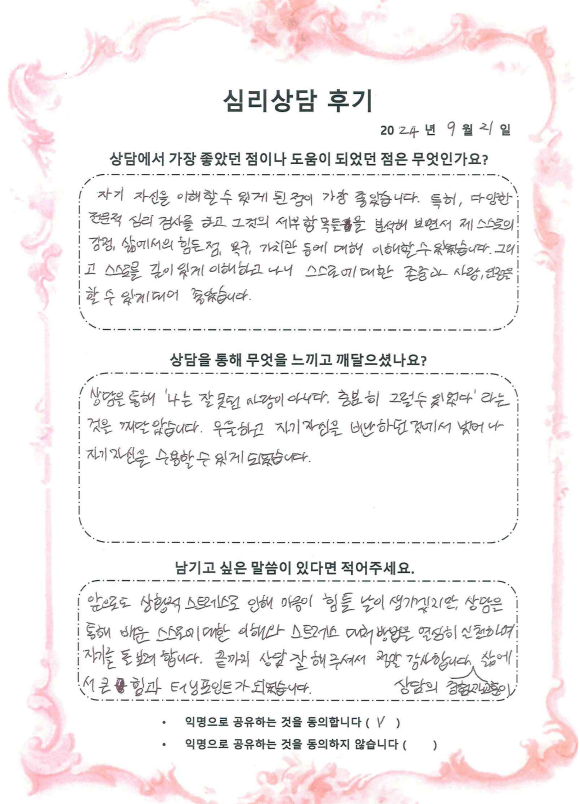 심리상담 후기
2024 년 9 월 21 일
상담에서 가장 좋았던 점이나 도움이 되었던 점은 무엇인가요?
자기 자신을 이해할 수 있게 된 점이 가장 좋았습니다. 특히, 다양한
전문적 심리 검사를 하고 그것의 세부항목들을 분석해 보면서 제 스스로의
강점, 삶에서의 힘든 점, 욕구, 가치관 등에 대해 이해할 수 있었습니다. 그리
고 스스로를 깊이 있게 이해하고 나니 스스로에 대한 존중과 사랑, 인정을
할 수 있게 되어 좋았습니다.
상담을 통해 무엇을 느끼고 깨달으셨나요?
상담을 통해 '나는 잘못된 사람이 아니다. 충분히 그럴 수 있었다' 라는
것을 깨달았습니다. 우울하고 자기 자신을 비난하던 것에서 벗어나
자기 자신을 수용할 수 있게 되었습니다.
남기고 싶은 말씀이 있다면 적어주세요.
앞으로도 상황적 스트레스로 인해 마음이 힘들 날이 생기겠지만, 상담을
통해 배운 스스로에 대한 이해와 스트레스 대처 방법을 열심히 실천하며
자기를 돌보려 합니다. 끝까지 상담 잘 해주셔서 정말 감사합니다. 삶에
서 큰 힘과 터닝포인트가 되었습니다. 상담의 경험과 교훈이
• 익명으로 공유하는 것을 동의합니다 ( V )
• 익명으로 공유하는 것을 동의하지 않습니다 ( )